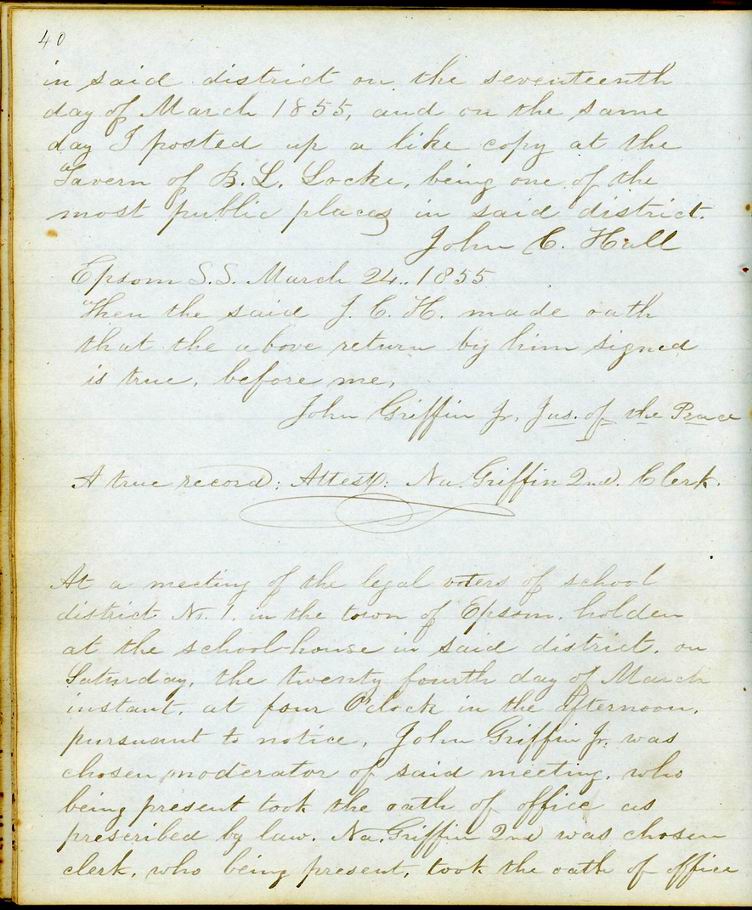 40
in said district on the seventeenth
day of March 1855, and on the same
day I posted up a like copy at the
Tavern of B. L. Locke, being one of the
most public places in said district.
John C. Hall
Epsom S.S. March 24.. 1855
Then the said J. C. H. made oath
that the above return by him signed
is true, before me,
John Griffin Jr, Jus. of the Peace
A true record; Attest; Na. Griffin 2nd. Clerk.
At a meeting of the legal voters of school
district No. 1. in the town of Epsom. holden
at the school-house in said district. on
Saturday, the twenty fourth day of March
instant. at four O'clock in the afternoon.
pursuant to notice, John Griffin Jr. was
chosen moderator of said meeting. who
being present took the oath of office as
prescribed by law. Na. Griffin 2nd was chosen
clerk. who being present, took the oath of office